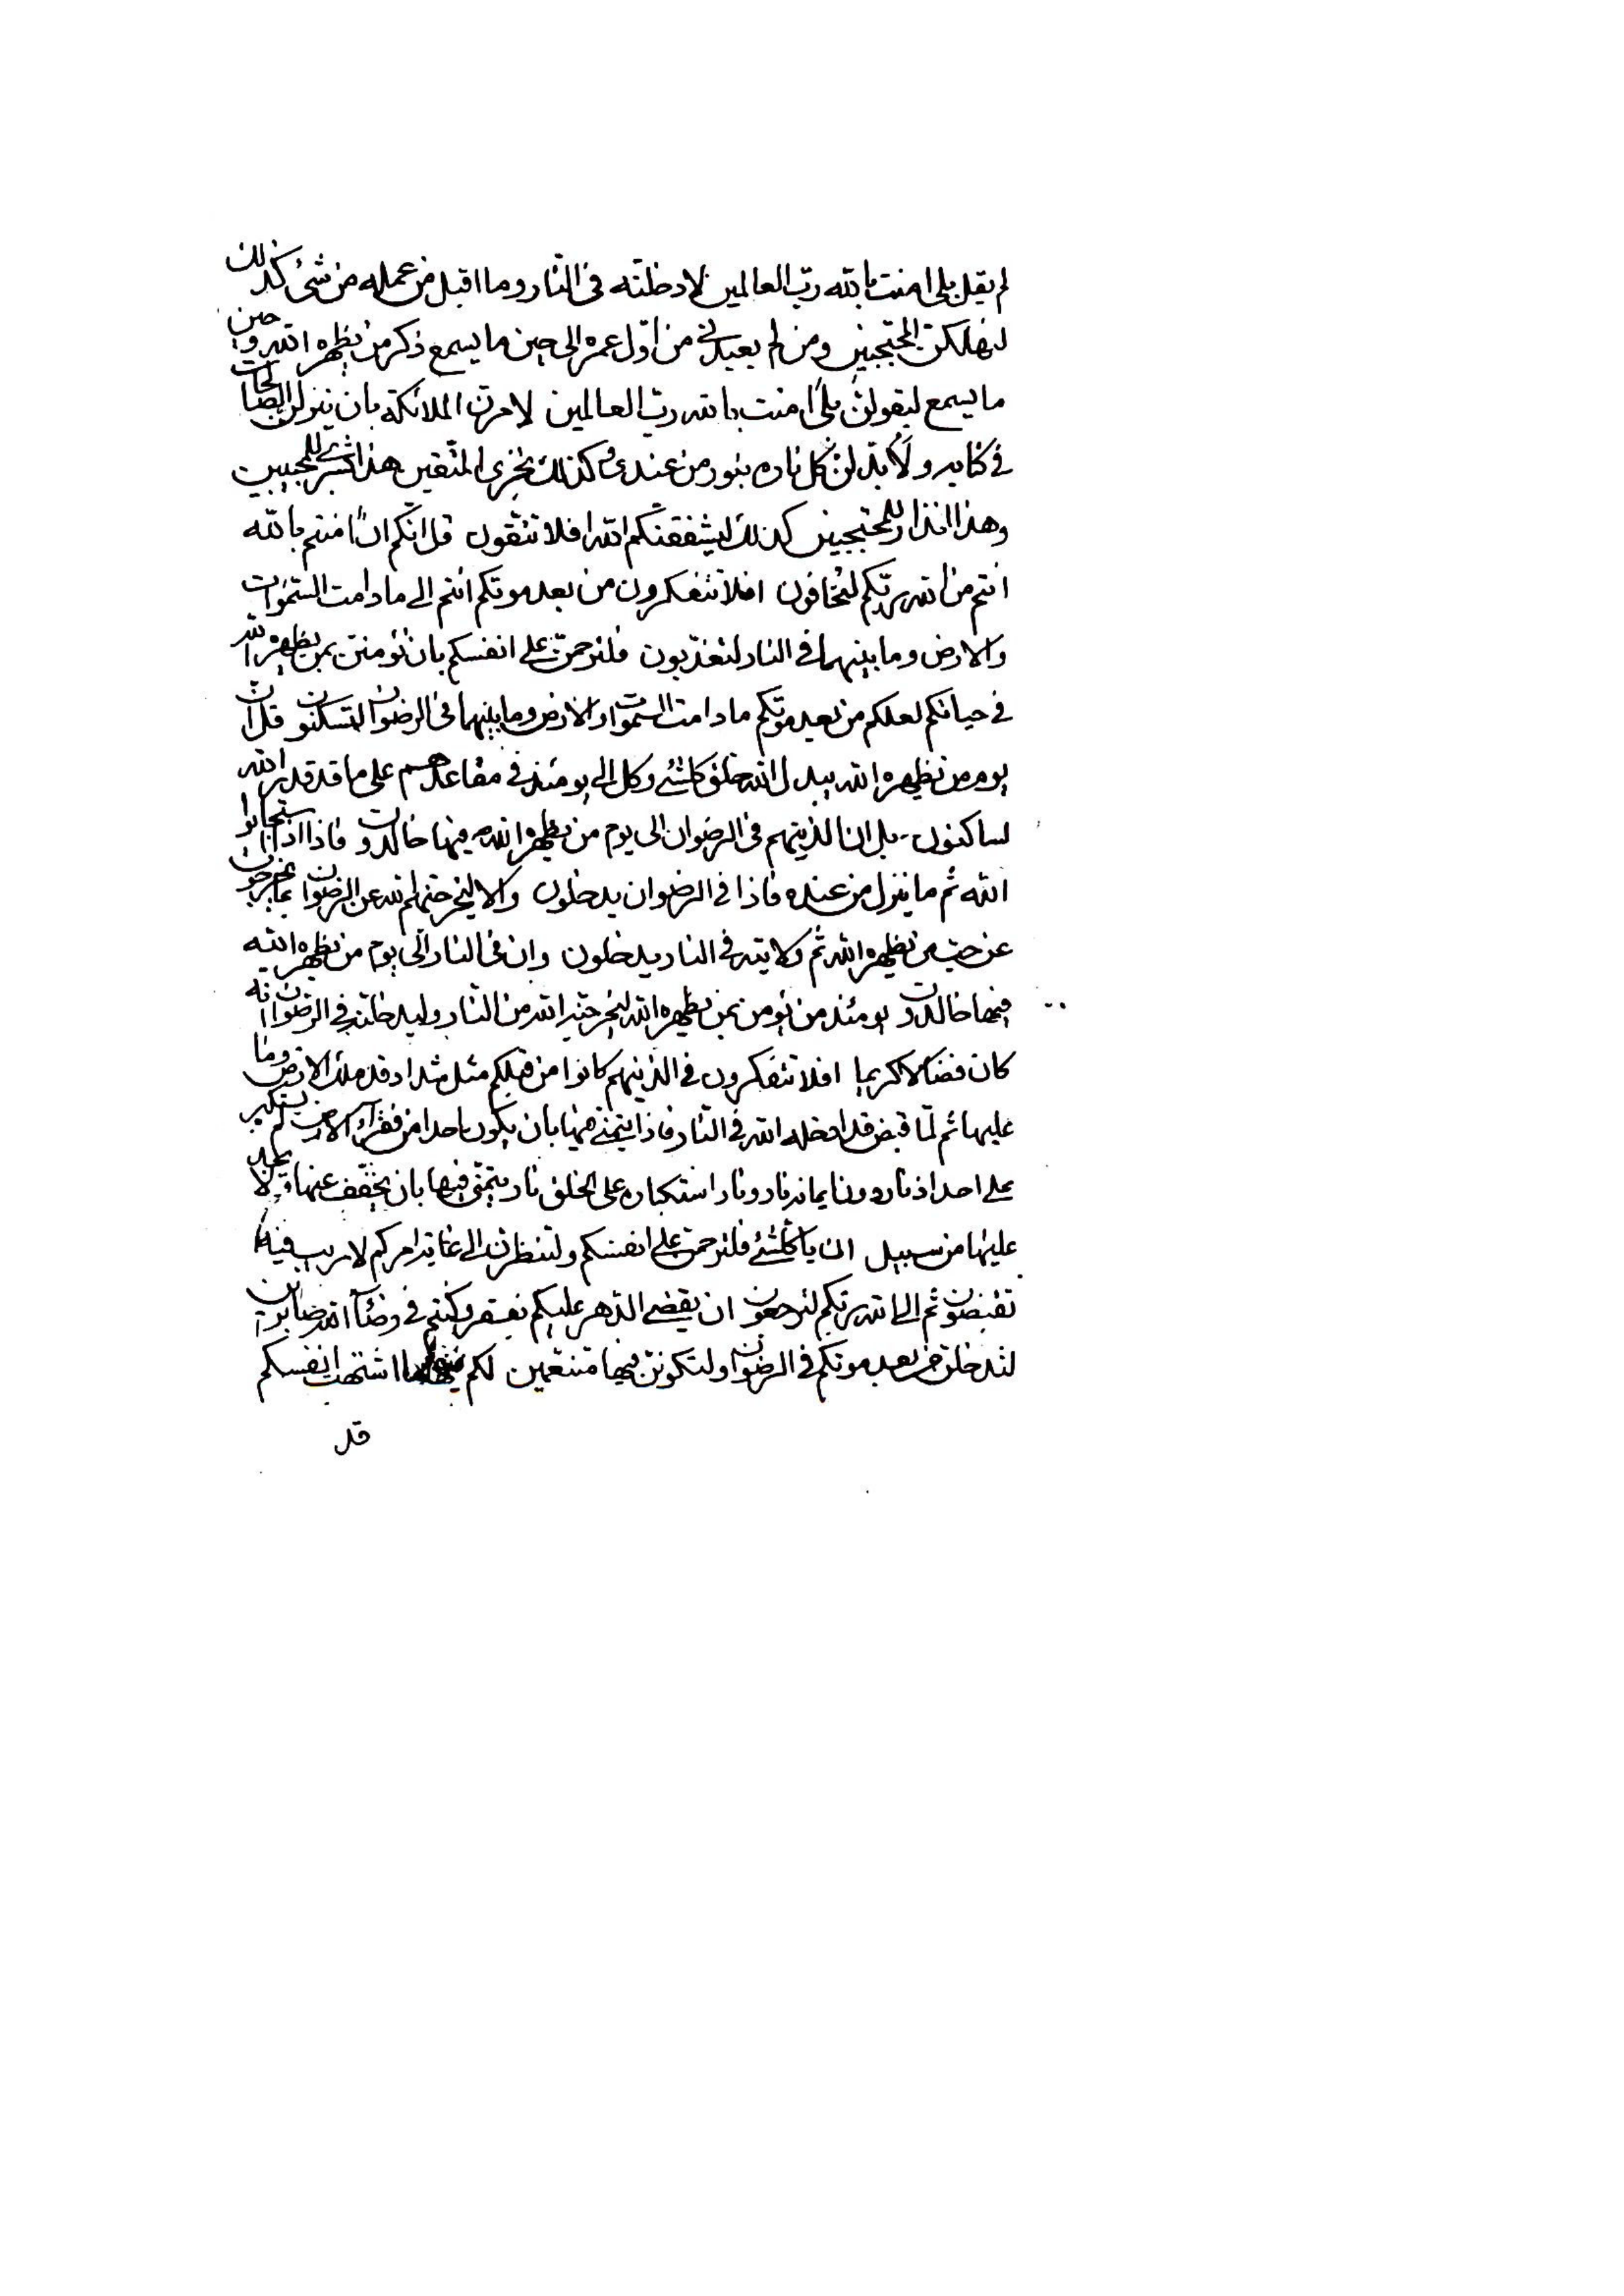 لم يقل بلى امنت بالله ربّ العالمين لادخلنّه فى النّار وما اقبل من عمله من شئ كذلك
لنهلكنّ المحتجبين ومن لم يعبدنى من اوّل عمره الى حين ما يسمع ذكر من يظهره الله وحين
ما يسمع ليقولنّ بلى امنت بالله ربّ العالمين لامرنّ الملائكة بان ينزلن الصالحات
فى كتابه ولابدّلنّ كل ناره بنور من عندى وكذلك نجزى المتّقين هذا للمجيبين
وهذا انذار للمحتجبين كذلك ليشفقنّكم الله افلا تتّقون قل انّكم ان امنتم بالله
انتم من الله ربّكم لتخافون افلا تتفكرون من بعد موتكم انتم الى ما دامت السّموات
والارض وما بينهما فى النار لتعذّبون فلترحمنّ على انفسكم بان تؤمننّ بمن يظهره الله
فى حياتكم لعلكم من بعد موتكم ما دامت السّموات والارض وما بينهما فى الرضوان لتسكنون قل انّ
يوم من يظهره الله يبدل الله خلق كلشئ وكل الى يومئذ فى مقاعدهم على ما قد قدر الله
لساكنون بل ان الذينهم فى الرضوان الى يوم من يظهره الله فيها خالدون فاذا استجابوا
الله ثم ما ينزل من عنده فاذا فى الرضوان يدخلون والا ليخرجنهم الله عن الرضوان بما يحتجبون
عن حبّ من يظهره الله ثم ولايته فى النار يدخلون وان فى النار الى يوم من يظهره الله
فيها خالدون يومئذ من يؤمن بمن يظهره الله ليخرجنّه الله من النّار وليدخلنّه فى الرّضوان انّه
كان فضالا كريما افلا تتفكرون فى الذينهم كانوا من قبلكم مثل شداد قد ملك الارض وما
عليها ثم لمّا قبض قد ادخله الله فى النّار فاذا يتمنّى فيها بان يكون احدا من فقرآء الارض لم يستكبر
على احد اذ نار دون ايمانه نار ونار استكباره على الخلق نار يتمنّى فيها بان يخفّف عنها ولا يجد
عليها من سبيل ان يا كلشئ فلترحمنّ على انفسكم ولتنظرنّ الى غاية امركم لا ريب فيه
تقبضون ثم الى الله ربّكم لترجعون ان يقضى الدّهر عليكم بفقر وكنتم فى رضآء الله صابرين
لتدخلنّ من بعد موتكم فى الرضوان ولتكوننّ فيها متنعّمين لكم ما اشتهت انفسكم
قد